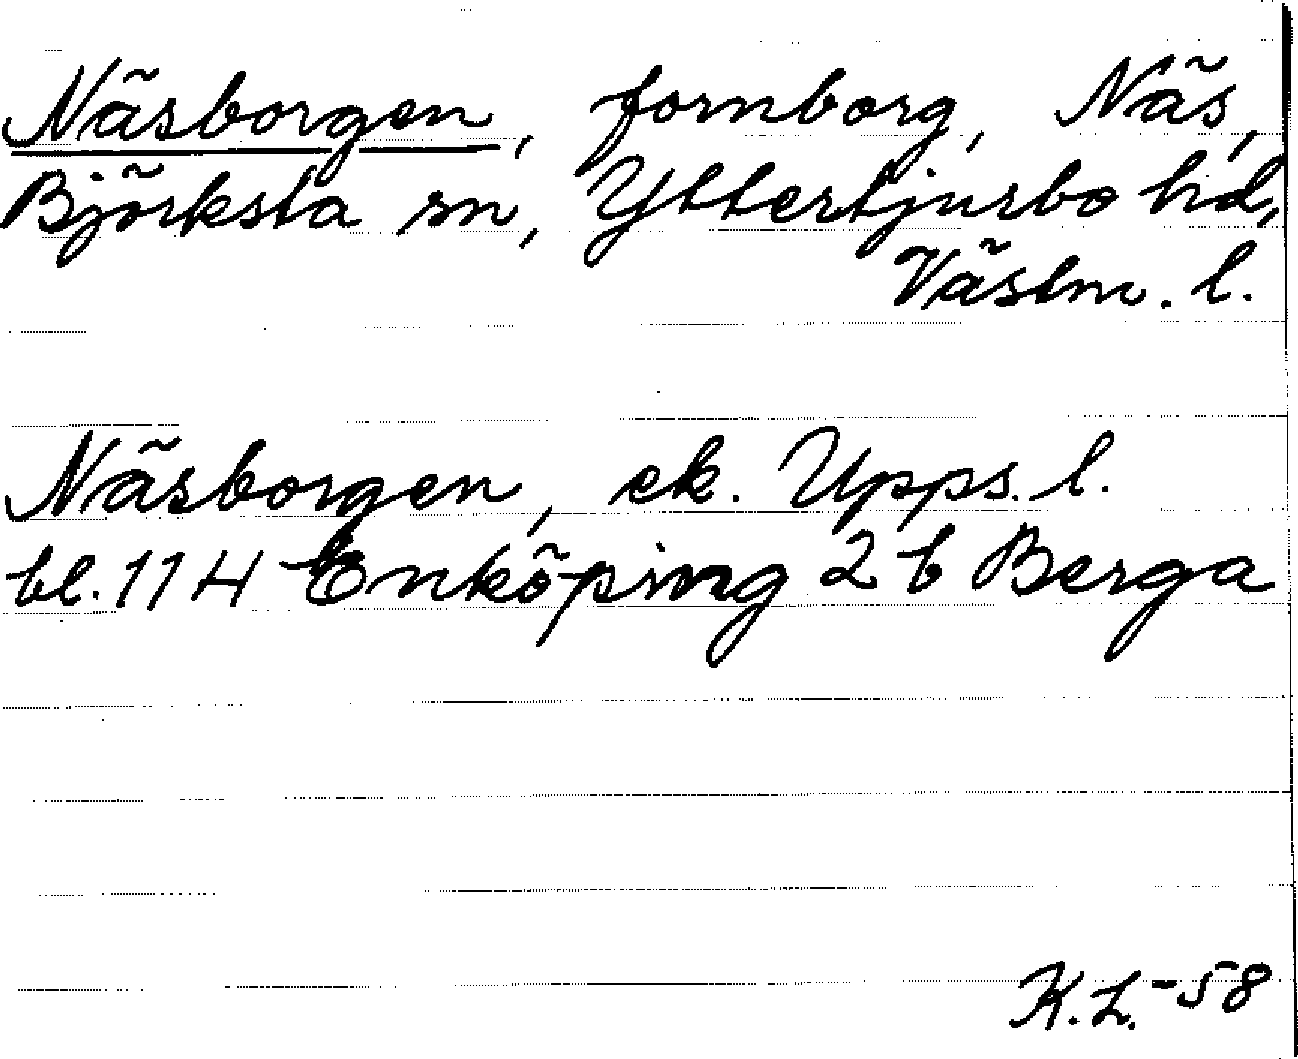 Näsborgen, fornborg, Näs,
Björksta sn, Yttertjurbo hd,
Västm. l.
Näsborgen, ek. Upps. l.
bl. 11 H Enköping 2 b Berga
K.L.-58